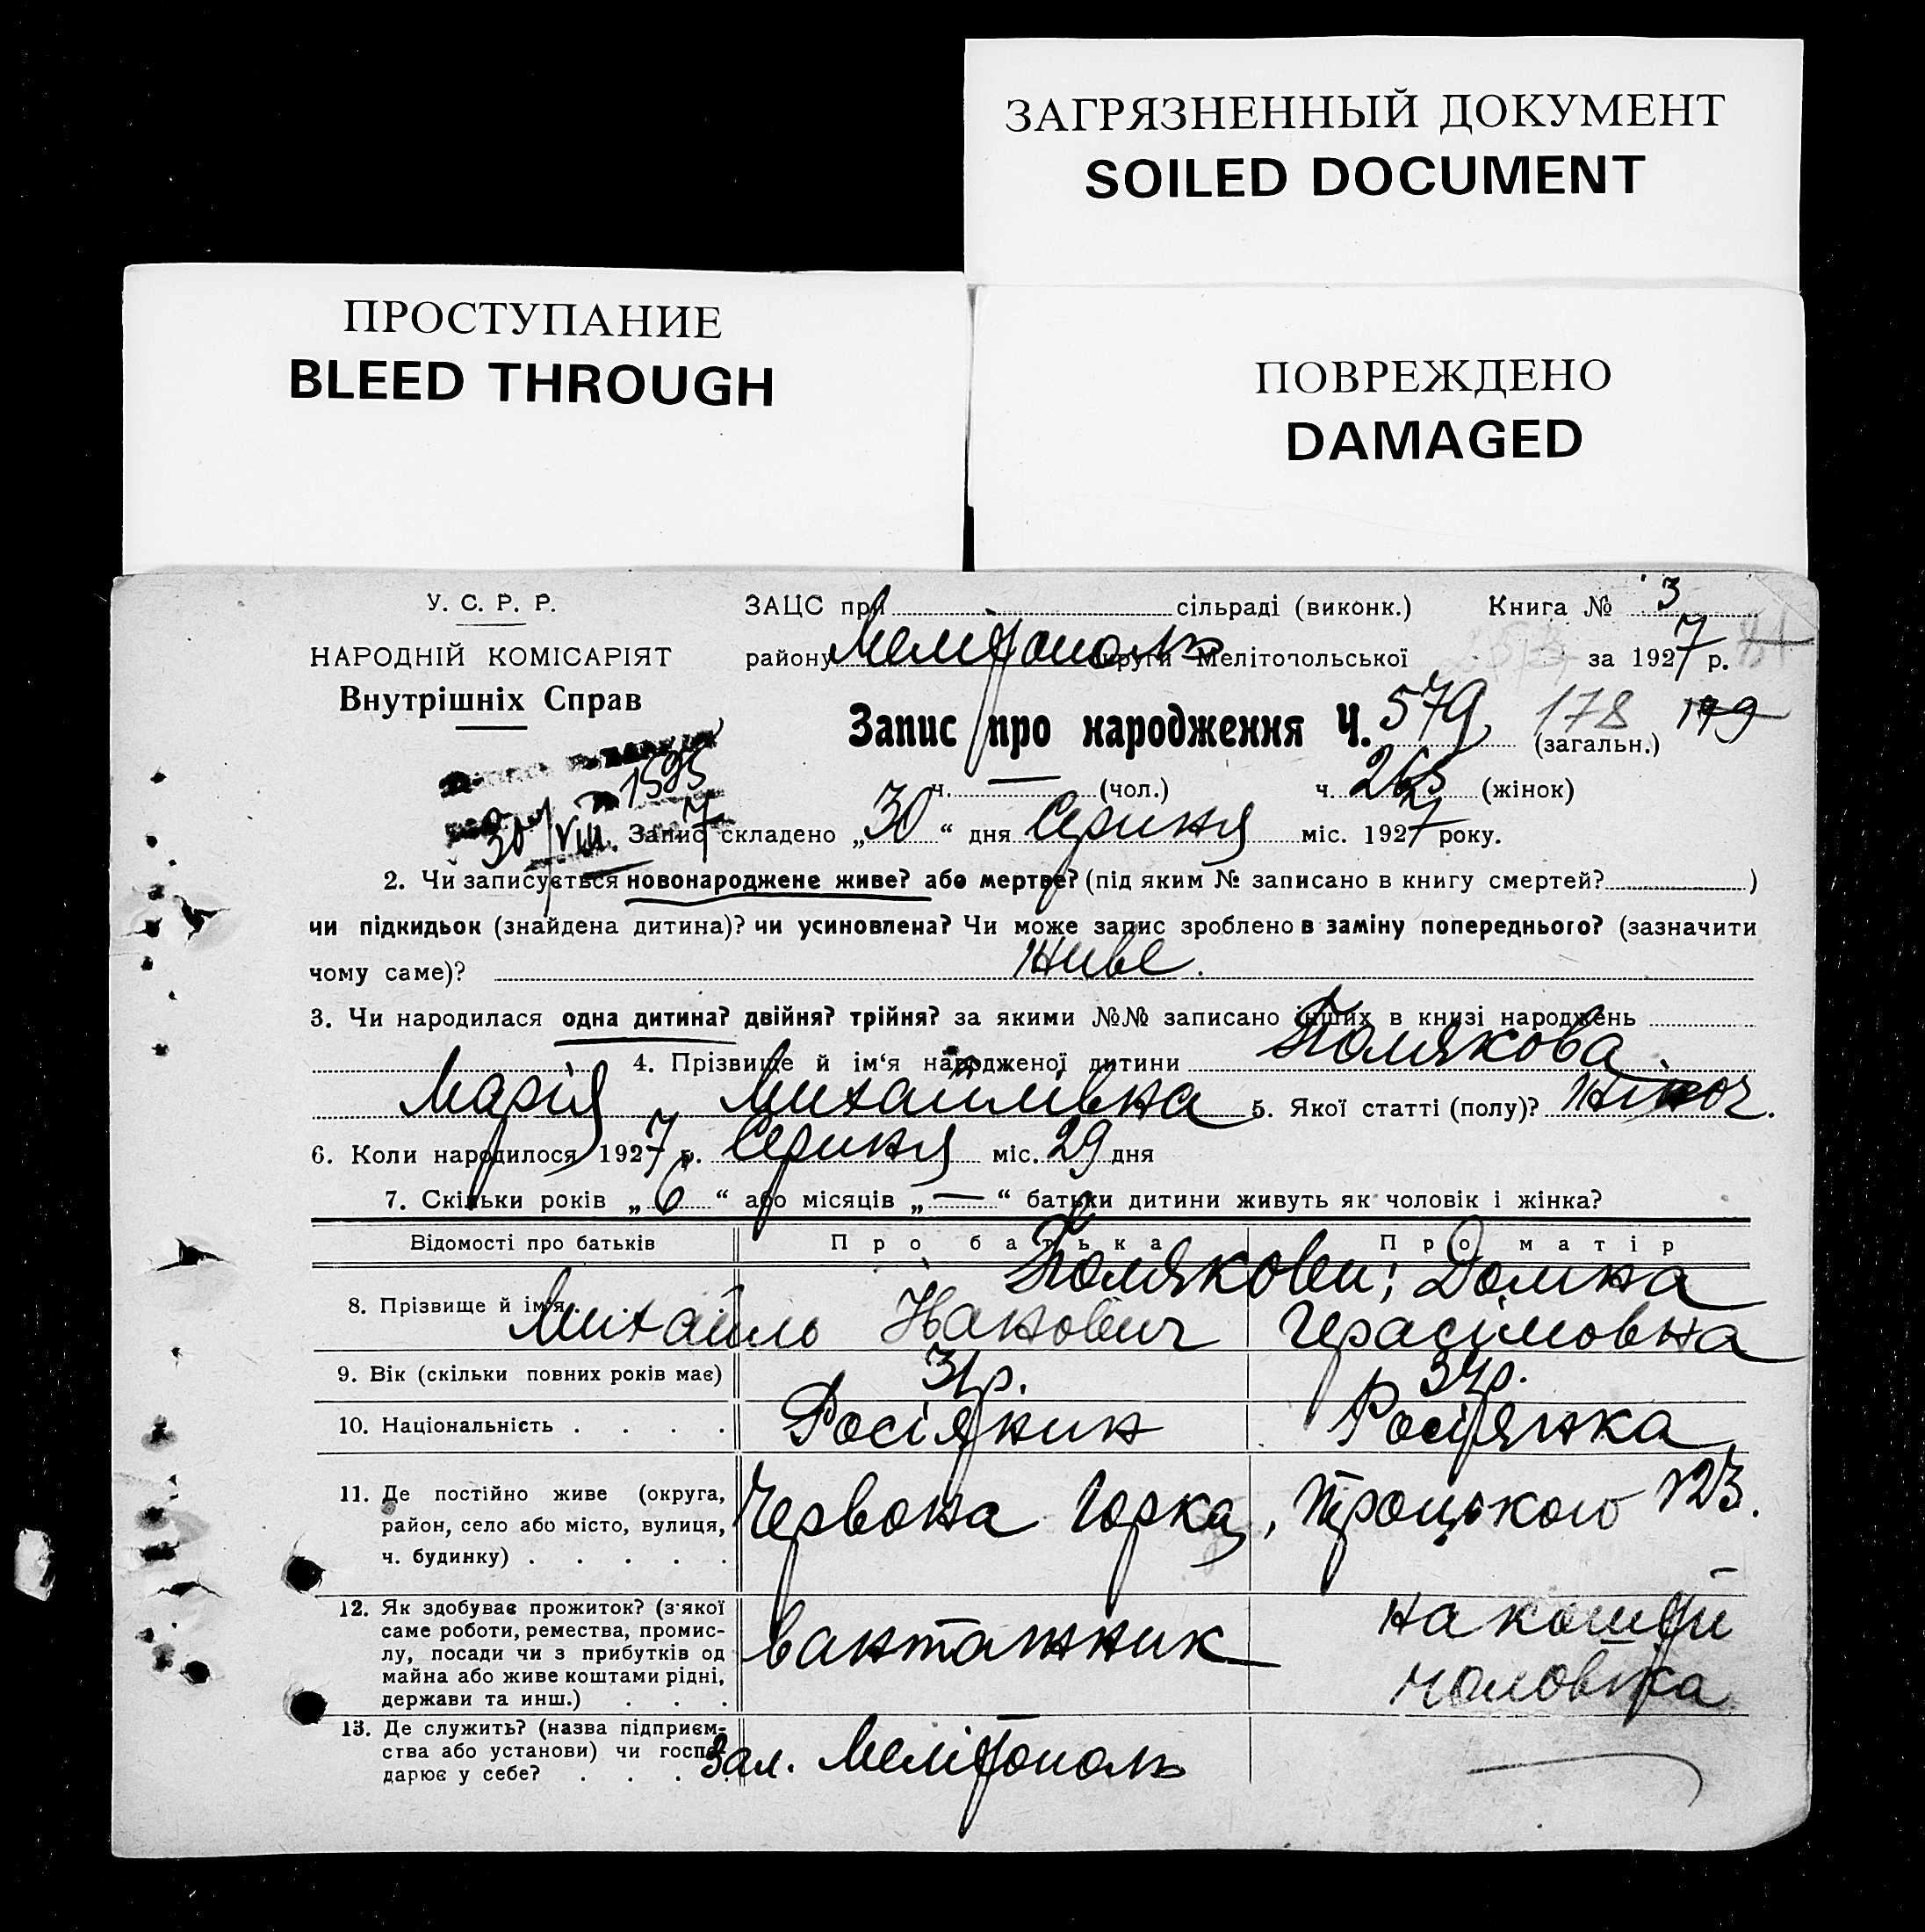 ЗАГРЯЗНЕННЫЙ ДОКУМЕНТ
SOILED DOCUMENT
ПРОСТУПАНИЕ
BLEED THROUGH
ПОВРЕЖДЕНО
DAMAGED
У. С. Р. Р.
НАРОДНІЙ КОМІСАРІЯТ
Внутрішніх Справ
ЗАЦС при сільраді (виконк.) Книга № 3
району Мелітополь округи Мелітопольської за 1927 р.
Запис про народження Ч. 579 178 179
(загальн.)
ч. — (чол.) ч. 265 (жінок)
1595
30/VIII 7
Запис складено „30“ дня Серпня міс. 1927 року.
2. Чи записується новонароджене живе? або мертве? (під яким № записано в книгу смертей? )
чи підкидьок (знайдена дитина)? чи усиновлена? Чи може запис зроблено в заміну попереднього? (зазначити
чому саме)? живе.
3. Чи народилася одна дитина? двійня? трійня? за якими №№ записано інших в книзі народжень
4. Прізвище й ім‘я народженої дитини Полякова
Марія Михайлівна 5. Якої статті (полу)? жіноч.
6. Коли народилося 1927 р. Серпня міс. 29 дня
7. Скільки років „6“ або місяців „—“ батьки дитини живуть як чоловік і жінка?
Відомості про батьків Про батька Про матір
8. Прізвище й ім‘я . . . . Полякови; Домна
Михайло Іванович Герасімовна
9. Вік (скільки повних років має) 31р. 34р.
10. Національність . . . . Росіянин Росіянка
11. Де постійно живе (округа,
район, село або місто, вулиця,
ч. будинку) . . . . .
Червона Горка, Троцького №23.
12. Як здобуває прожиток? (з'якої
саме роботи, ремества, промис-
лу, посади чи з прибутків од
майна або живе коштами рідні,
держави та инш.) . . .
вантажник
на кошти
чоловіка
13. Де служить? (назва підприєм-
ства або установи) чи госпо-
дарює у себе? . . . .
Зал. Мелітополь